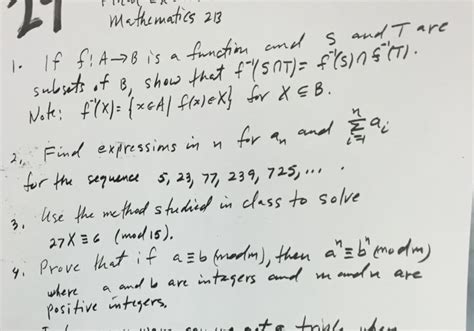 Mathematics 213
1. If f: A→B is a function and S and T are
subsets of B, show that f⁻¹(S∩T) = f⁻¹(S)∩f⁻¹(T).
Note: f⁻¹(X) = {x∈A | f(x)∈X} for X ⊆ B.
2. Find expressions in n for aₙ and ∑ᵢ₌₁ⁿ aᵢ
for the sequence 5, 23, 77, 239, 725, ... .
3. Use the method studied in class to solve
27X ≡ 6 (mod 15).
4. Prove that if a ≡ b (mod m), then aⁿ ≡ bⁿ (mod m)
where a and b are integers and m and n are
positive integers.